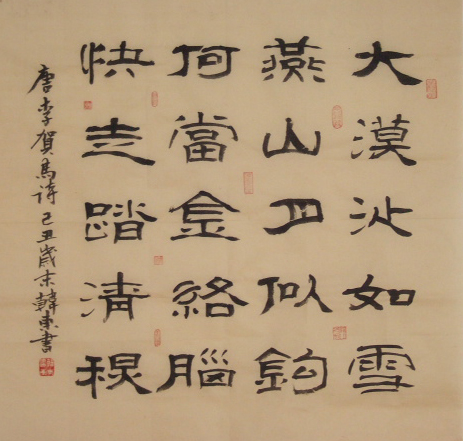 大漠沙如雪
燕山月似鉤
何當金絡腦
快走踏清秋
唐李賀馬诗己丑歲末韓东書